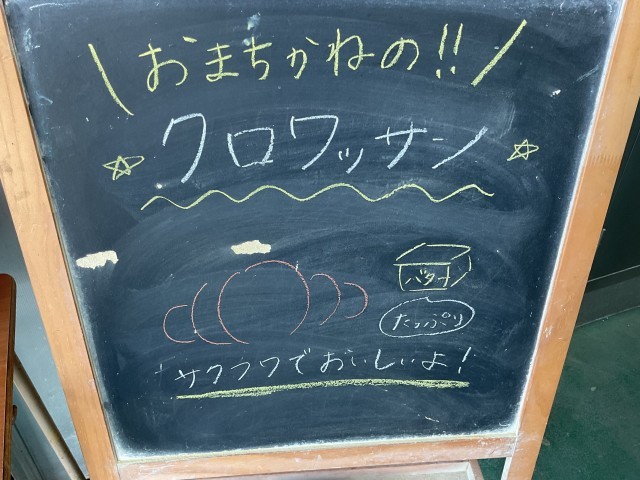 \おまちかねの!!/
☆クロワッサン☆
バター
たっぷり
サクフワでおいしいよ!